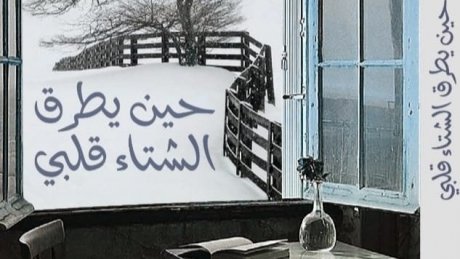 حين يطرق
الشتاء قلبي
حين يطرق الشتاء قلبي